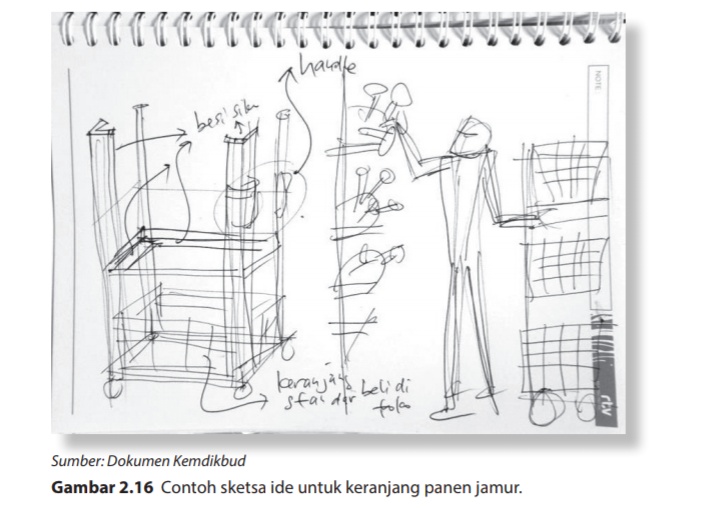 handle
besi siku
NOTE
keranjang beli di
standar toko
rtv
Sumber: Dokumen Kemdikbud
Gambar 2.16 Contoh sketsa ide untuk keranjang panen jamur.